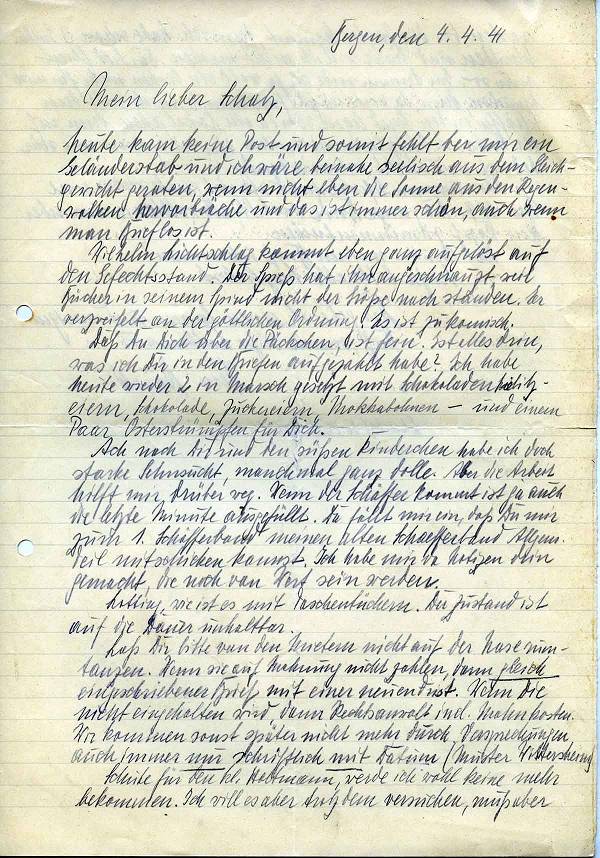 Bergen, den 4. 4. 41
Mein lieber Schatz,
heute kam keine Post und somit fehlt bei mir ein
Geländerstab und ich wäre beinahe seelisch aus dem Gleich-
gewicht geraten, wenn nicht eben die Sonne aus den Regen-
wolken hervorbräche und das ist immer schön, auch wenn
man brieflos ist.
Wilhelm kommt eben ganz aufgelöst auf
den Gefechtsstand. Der Spieß hat ihn angeschnauzt weil
Bücher in seinem Spind nicht der Größe nach standen. Er
verzweifelt an der göttlichen Ordnung. Es ist zu komisch.
Daß Du Dich über die Päckchen, ist fein. Ist alles drin,
was ich Dir in den Briefen aufgezählt habe? Ich habe
heute wieder 2 in Marsch gesetzt mit Schokoladen
eiern, Schokolade, Zuckereiern, Mokkabohnen — und einem
Paar Osterstrümpfen für Dich.
Ach nach Dir und den süßen Kinderchen habe ich doch
starke Sehnsucht, manchmal ganz dolle. Aber die Arbeit
hilft mir drüber weg. Wenn der Schäffer kommt ist ja auch
die letzte Minute ausgefüllt. Da fällt mir ein, daß Du mir
zum 1. Schäfferband meinen alten Schaefferband Allgem.
Teil mitschicken kannst. Ich habe mir da Notizen drin
gemacht, die noch von Wert sein werden.
wie ist es mit Taschentüchern. Der Zustand ist
auf die Dauer unhaltbar.
Laß Dir bitte von den Mietern nicht auf der Nase rum-
tanzen. Wenn sie auf Mahnung nicht zahlen, dann gleich
eingeschriebener Brief mit einer neuen Frist. Wenn die
nicht eingehalten wird dann Rechtsanwalt incl. Mahnkosten.
Wir kommen sonst später nicht mehr durch. Versprechungen
auch immer nur schriftlich mit Datum (Muster
Schuhe für den kl. werde ich wohl keine mehr
bekommen. Ich will es aber trotzdem versuchen, muß aber